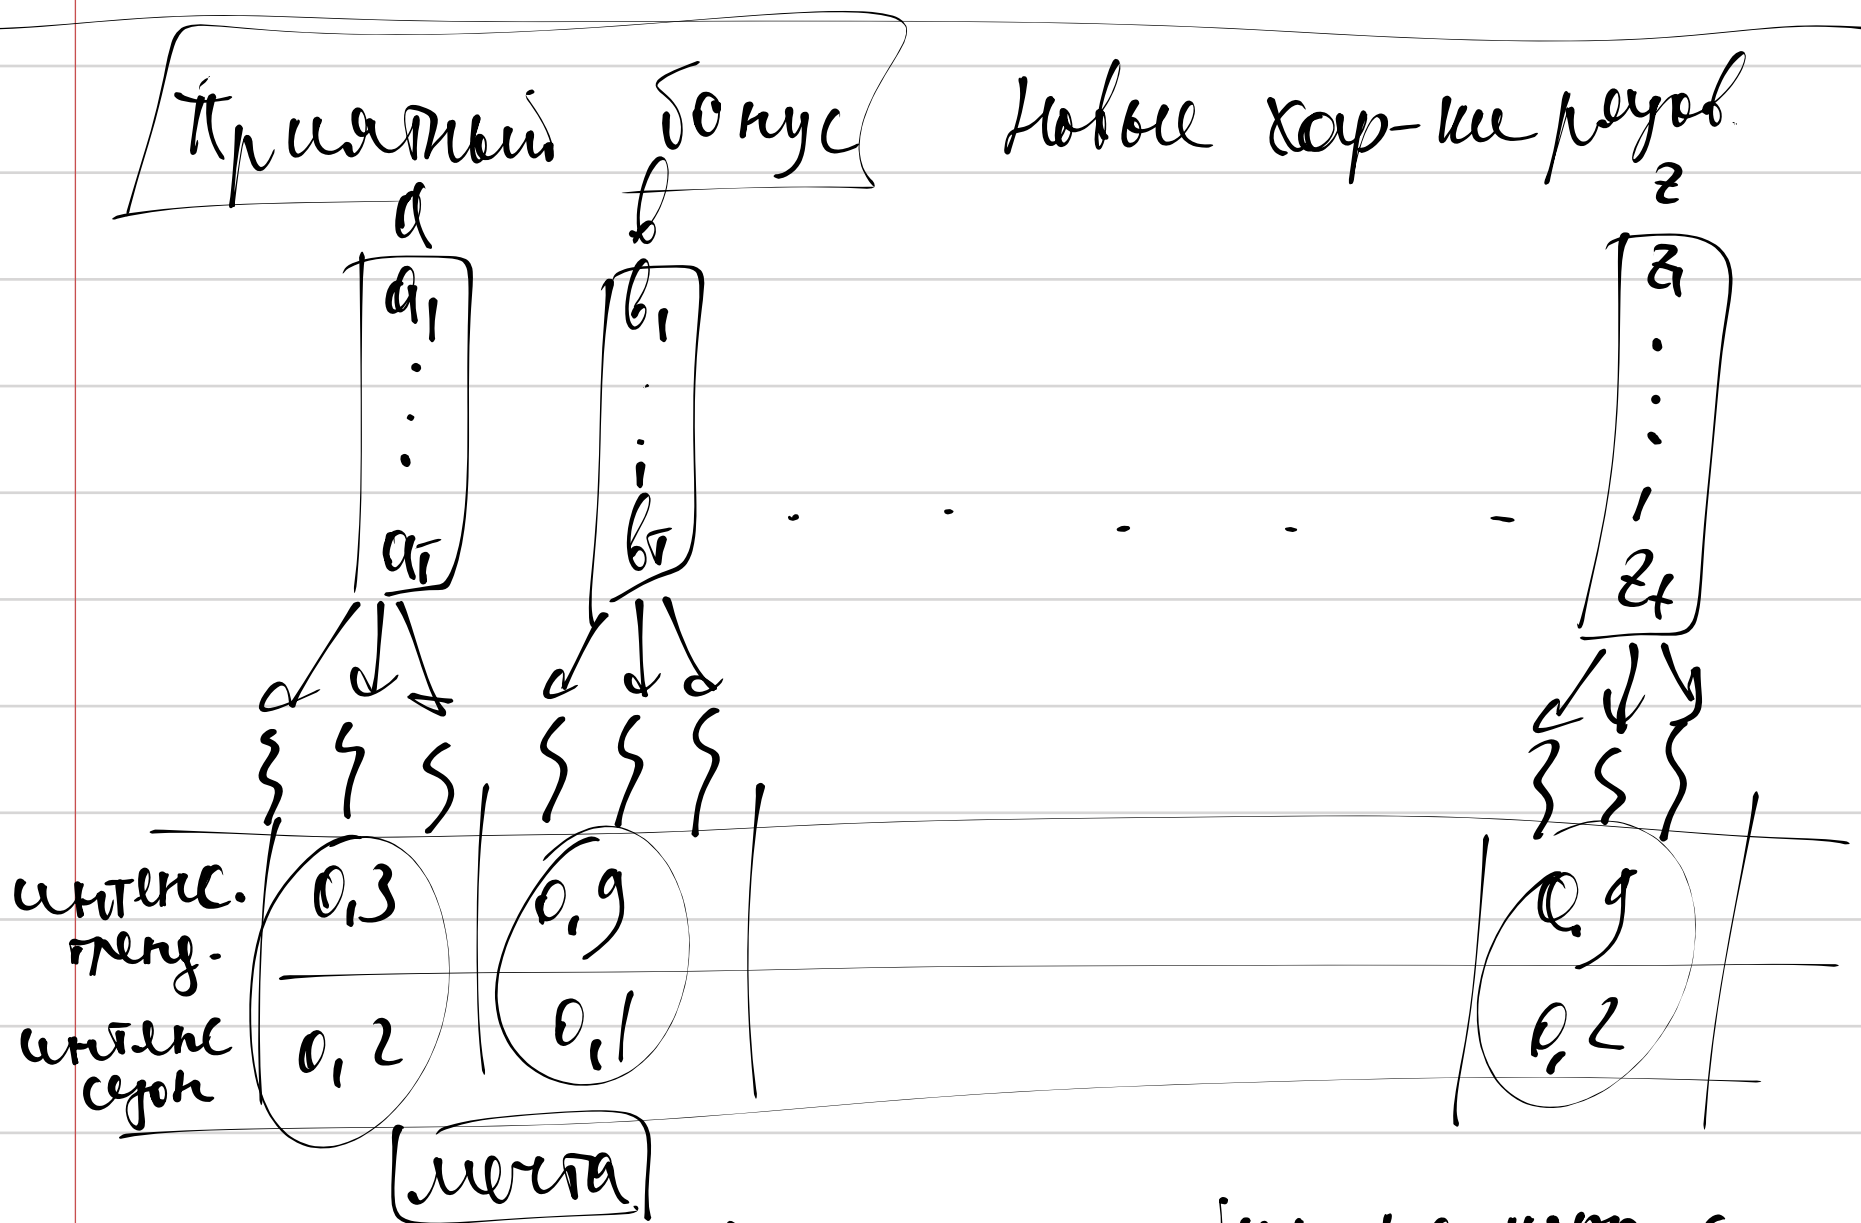 Приятный бонус Новые хар-ки рядов
a b z
a₁ b₁ z₁
a_T b_T z_t
интенс. тренд. 0,3 0,9 0,9
интенс сезон 0,2 0,1 0,2
мечта